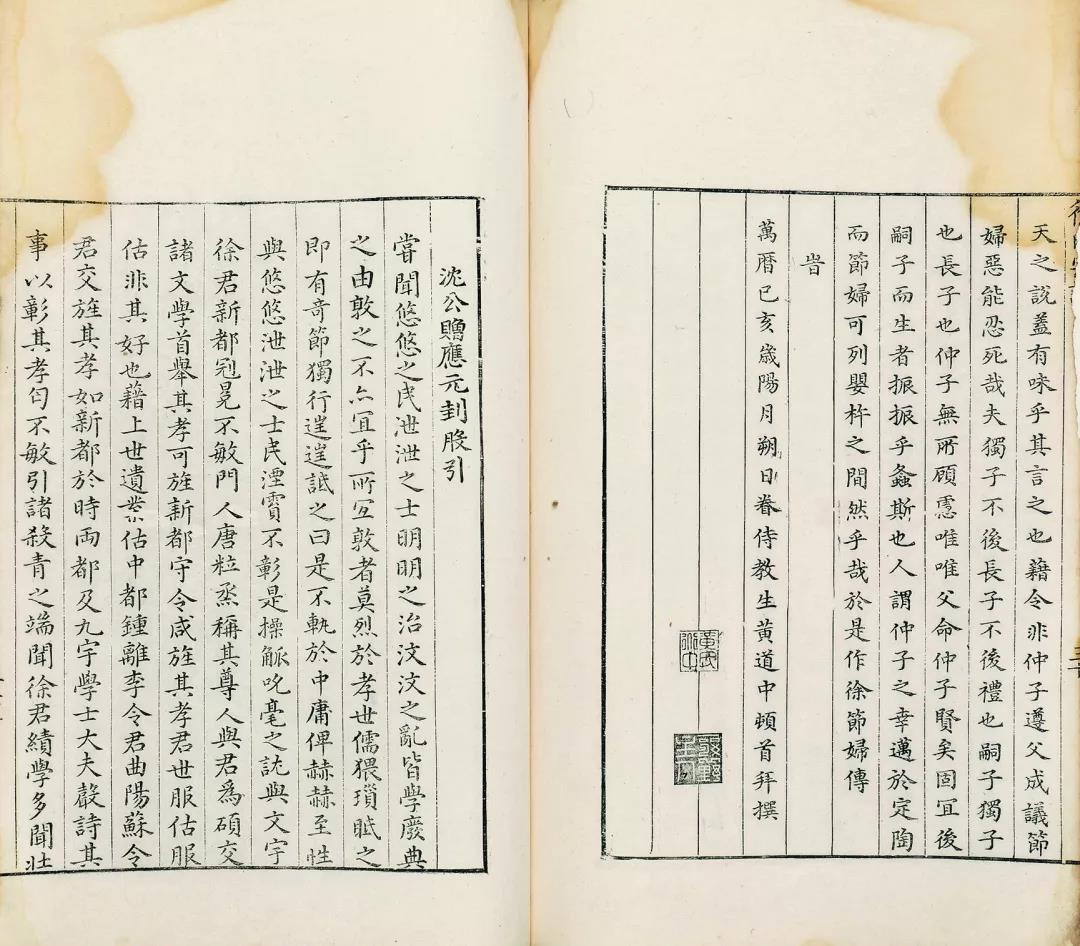 天之說蓋有味乎其言之也藉令非仲子遵父成議節
婦惡能忍死哉夫獨子不後長子不後禮也嗣子獨子
也長子也仲子無所顧慮唯唯父命仲子賢矣固冝後
嗣子而生者振振乎螽斯也人謂仲子之幸邁於定陶
而節婦可列嬰杵之間然乎哉於是作徐節婦傳
旹
萬曆己亥歲陽月朔日眷侍教生黄道中頓首拜撰
黃氏
沈公贈應元刲股引
嘗聞悠悠之民泄泄之士明明之治汶汶之亂皆學廢典
之由敦之不亦冝乎所冝敦者莫烈於孝世儒猥瑣眡之
即有奇節獨行逞逞詆之曰是不軌於中庸俾赫赫至性
與悠悠泄泄之士民湮賈不彰是操觚吮毫之訧與文宇
徐君新都冠冕不敏門人唐粒烝稱其尊人與君為碩交
諸文學首舉其孝可旌新都守令咸旌其孝君世服估服
估非其好也藉上世遺業估中都鍾離李令君曲陽蘇令
君交旌其孝如新都於時兩都及九宇學士大夫聲詩其
事以彰其孝匄不敏引諸殺青之端聞徐君績學多聞壯